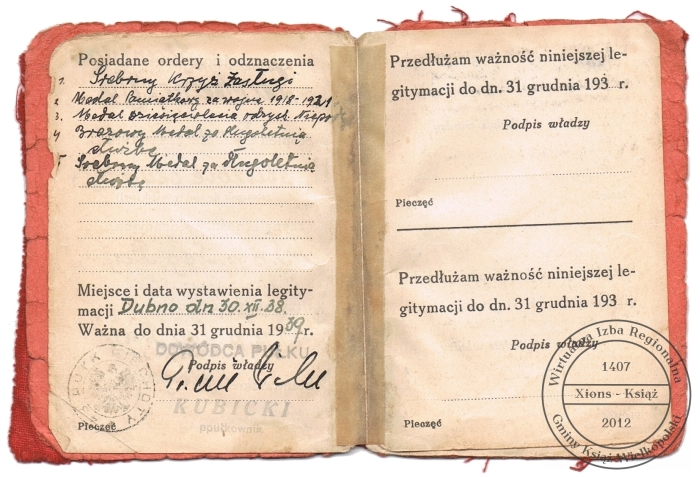 Posiadane ordery i odznaczenia
1. Srebrny Krzyż Zasługi
2. Medal Pamiątkowy za wojnę 1918-1921
3. Medal dziesięciolecia odzysk. Niepodl
4 Brązowy Medal za długoletnią
służbę
5 Srebrny Medal za długoletnią
służbę
Miejsce i data wystawienia legity-
macji Dubno dn 30.XII.38.
Ważna do dnia 31 grudnia 1939 r.
DOWÓDCA PUŁKU
Podpis władzy
KUBICKI
ppułkownik
PUŁK PIECHOTY
Pieczęć
Przedłużam ważność niniejszej le-
gitymacji do dn. 31 grudnia 193 r.
Podpis władzy
Pieczęć
Przedłużam ważność niniejszej le-
gitymacji do dn. 31 grudnia 193 r.
Podpis władzy
Pieczęć
Wirtualna Izba Regionalna
1407
Xions - Książ
2012
Gminy Książ Wielkopolski